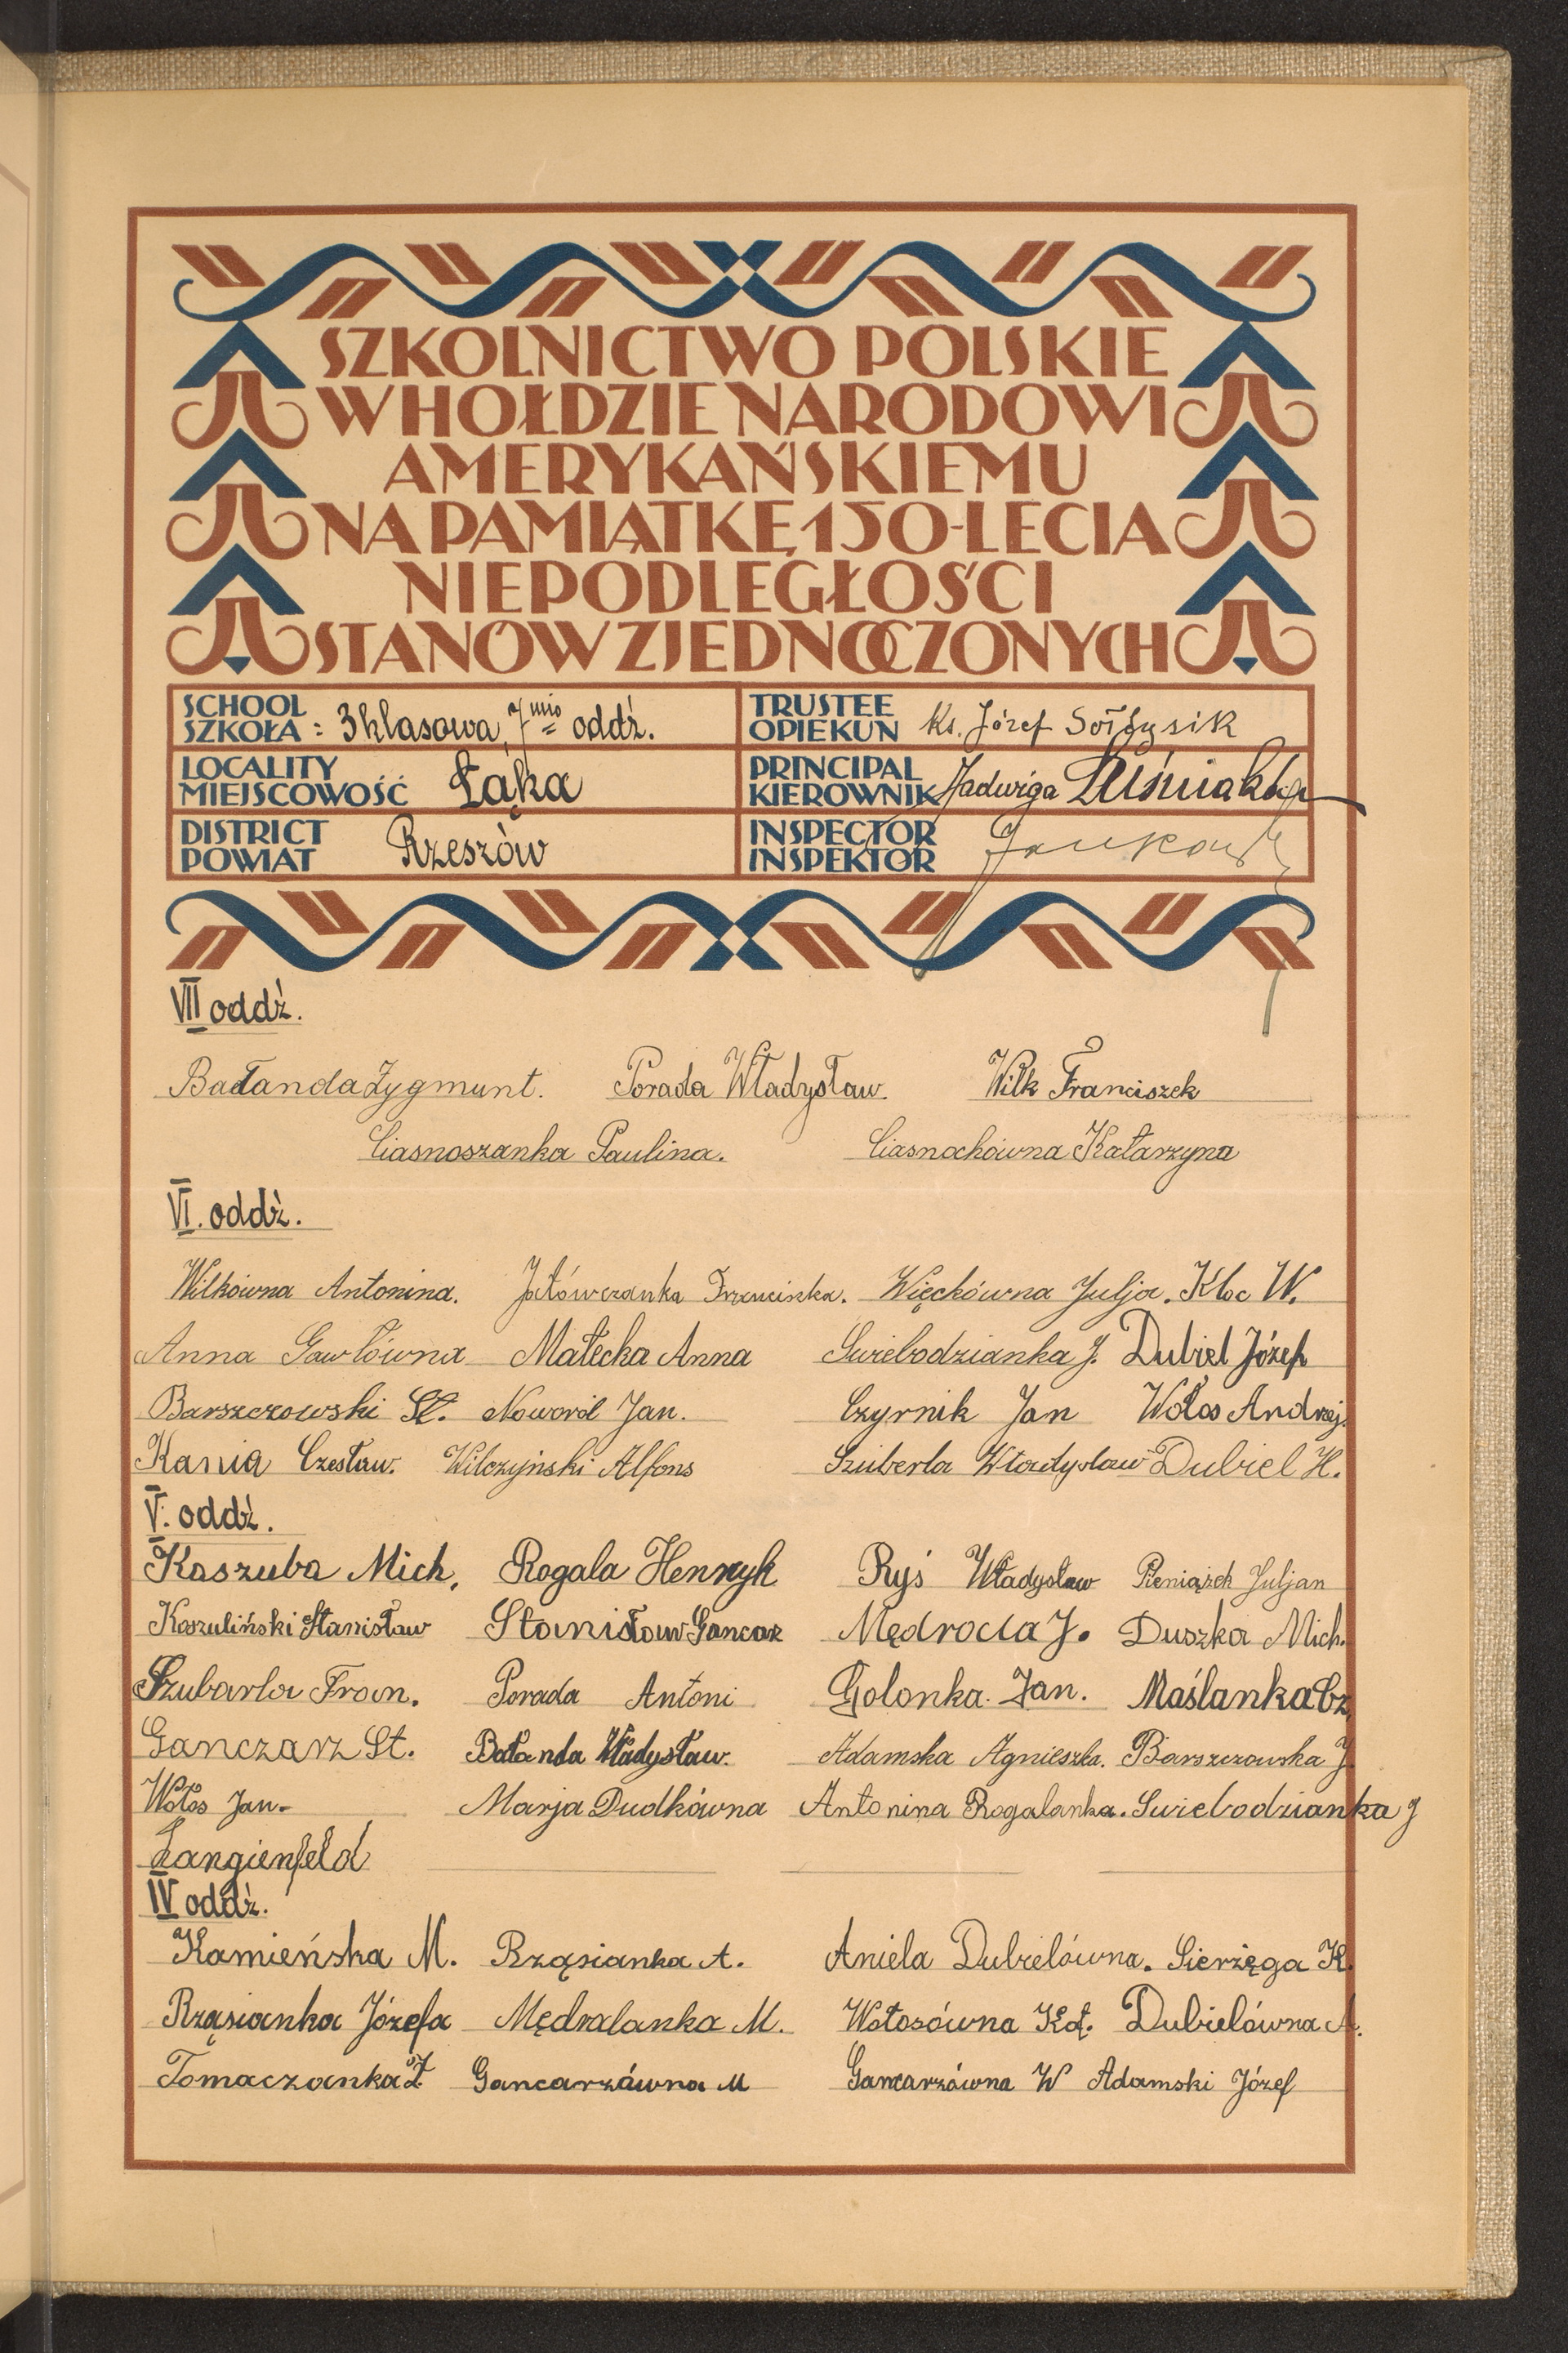 SZKOLNICTWO POLSKIE
W HOŁDZIE NARODOWI
AMERYKAŃSKIEMU
NA PAMIĄTKĘ 150-LECIA
NIEPODLEGŁOŚCI
STANÓW ZJEDNOCZONYCH
SCHOOL
SZKOŁA : 3 klasowa, 7mio oddź.
TRUSTEE
OPIEKUN Ks. Józef Sołtysik
LOCALITY
MIEJSCOWOŚĆ Łąka
PRINCIPAL
KIEROWNIK Jadwiga
DISTRICT
POWIAT Rzeszów
INSPECTOR
INSPEKTOR
VII oddź.
Bałanda Zygmunt. Porada Władysław. Wilk Franciszek
Ciasnoszanka Paulina. Ciasnochówna Katarzyna
VI. oddź.
Wilkówna Antonina. Jałówczanka Franciszka. Więckówna Julja. Kloc W.
Anna Gawłówna Małecka Anna Swiebodzianka J. Dubiel Józef
Barszczowski St. Noworól Jan. Czyrnik Jan Wołos Andrzej.
Kania Czesław. Wilczyński Alfons Szuberla Władysław Dubiel H.
V. oddź.
Kaszuba Mich. Rogala Henryk Ryś Władysław Pieniążek Juljan
Koszuliński Stanisław Stanisław Gancarz Mędrocla J. Duszka Mich.
Szubarla Fran. Porada Antoni Golonka. Jan. Maślanka Cz.
Ganczarz St. Bałanda Władysław. Adamska Agnieszka. Barszczowska J.
Wołos Jan. Marja Dudkówna Antonina Rogalanka. Swiebodzianka J
Langienfeld
IV oddź.
Kamieńska M. Rząsianka A. Aniela Dubielówna. Sierżęga K.
Rząsianka Józefa Mędralanka M. Wołosówna Kat. Dubielówna A.
Tomaczanka Z. Gancarzówna M Gancarzówna W Adamski Józef